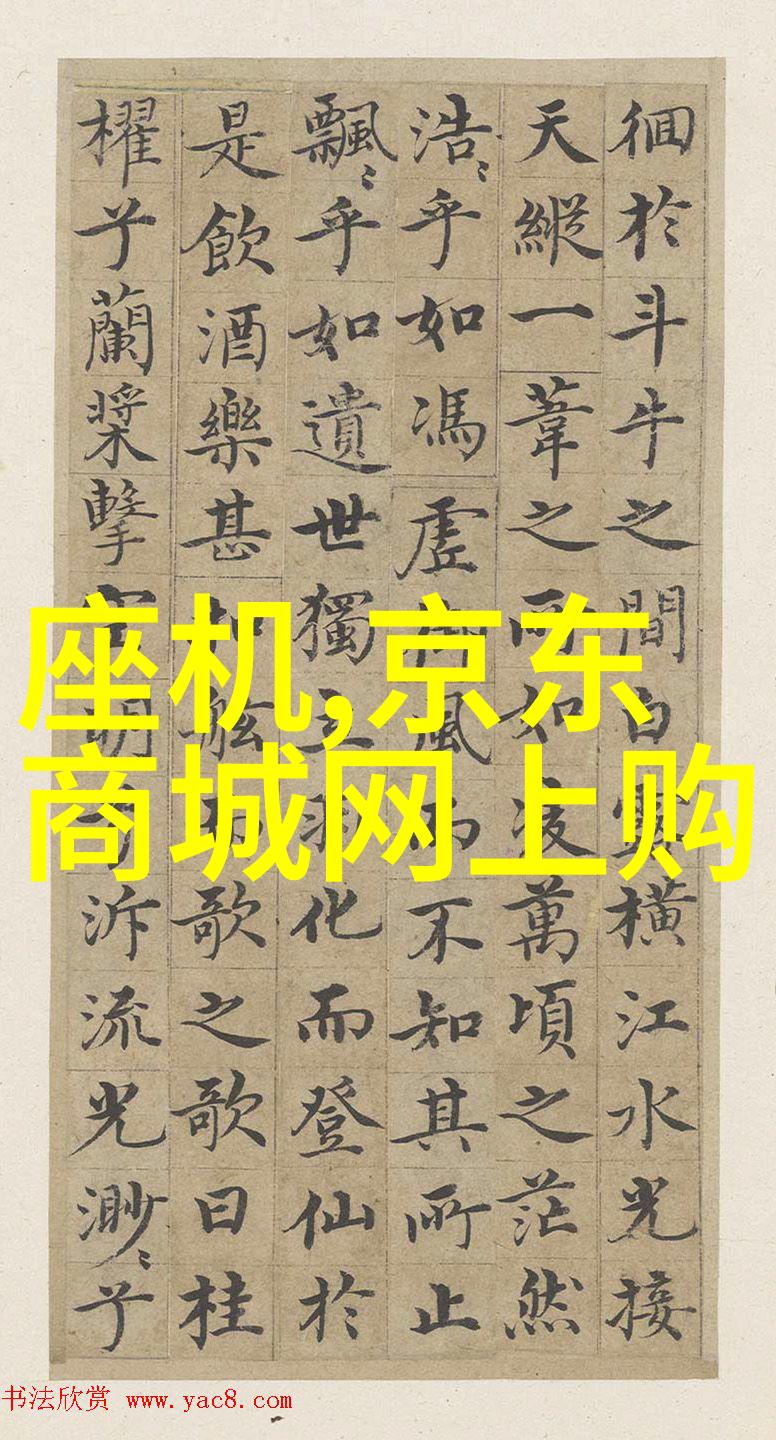 徊於斗牛之間白橫江水光接
天縱一葦之所如凌萬頃之茫然
浩〻乎如馮虛風而不知其所止
飄〻乎如遺世獨立化而登仙於
是飲酒樂甚舷而歌之歌曰桂
櫂兮蘭槳擊泝流光渺〻兮
座机,京东
商城网上购
书法欣赏 www.yac8.com